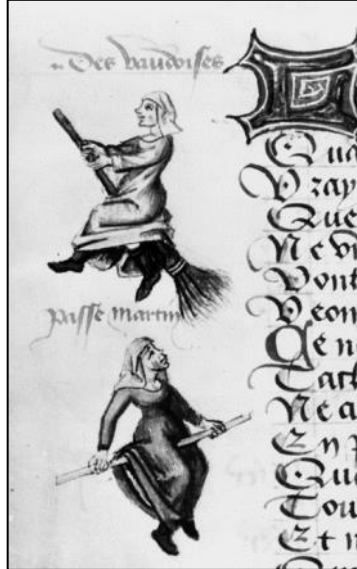 Des vaudoises
passe martin
Qua
Vray
Que
Ne v
Dont
Veom
Qe n
Tach
Ne a
En p
Qui
Tou
Et n